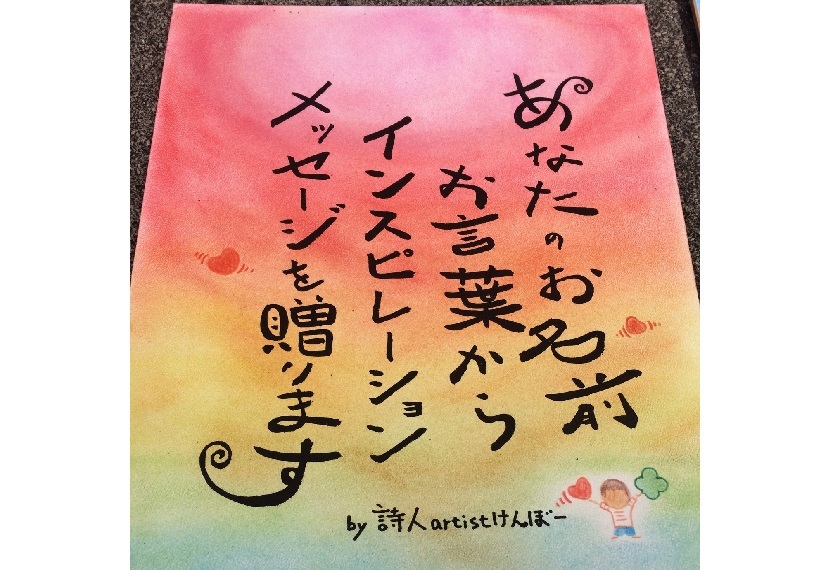 あなたのお名前
お言葉から
インスピレーション
メッセージを贈ります
by 詩人artistけんぼー